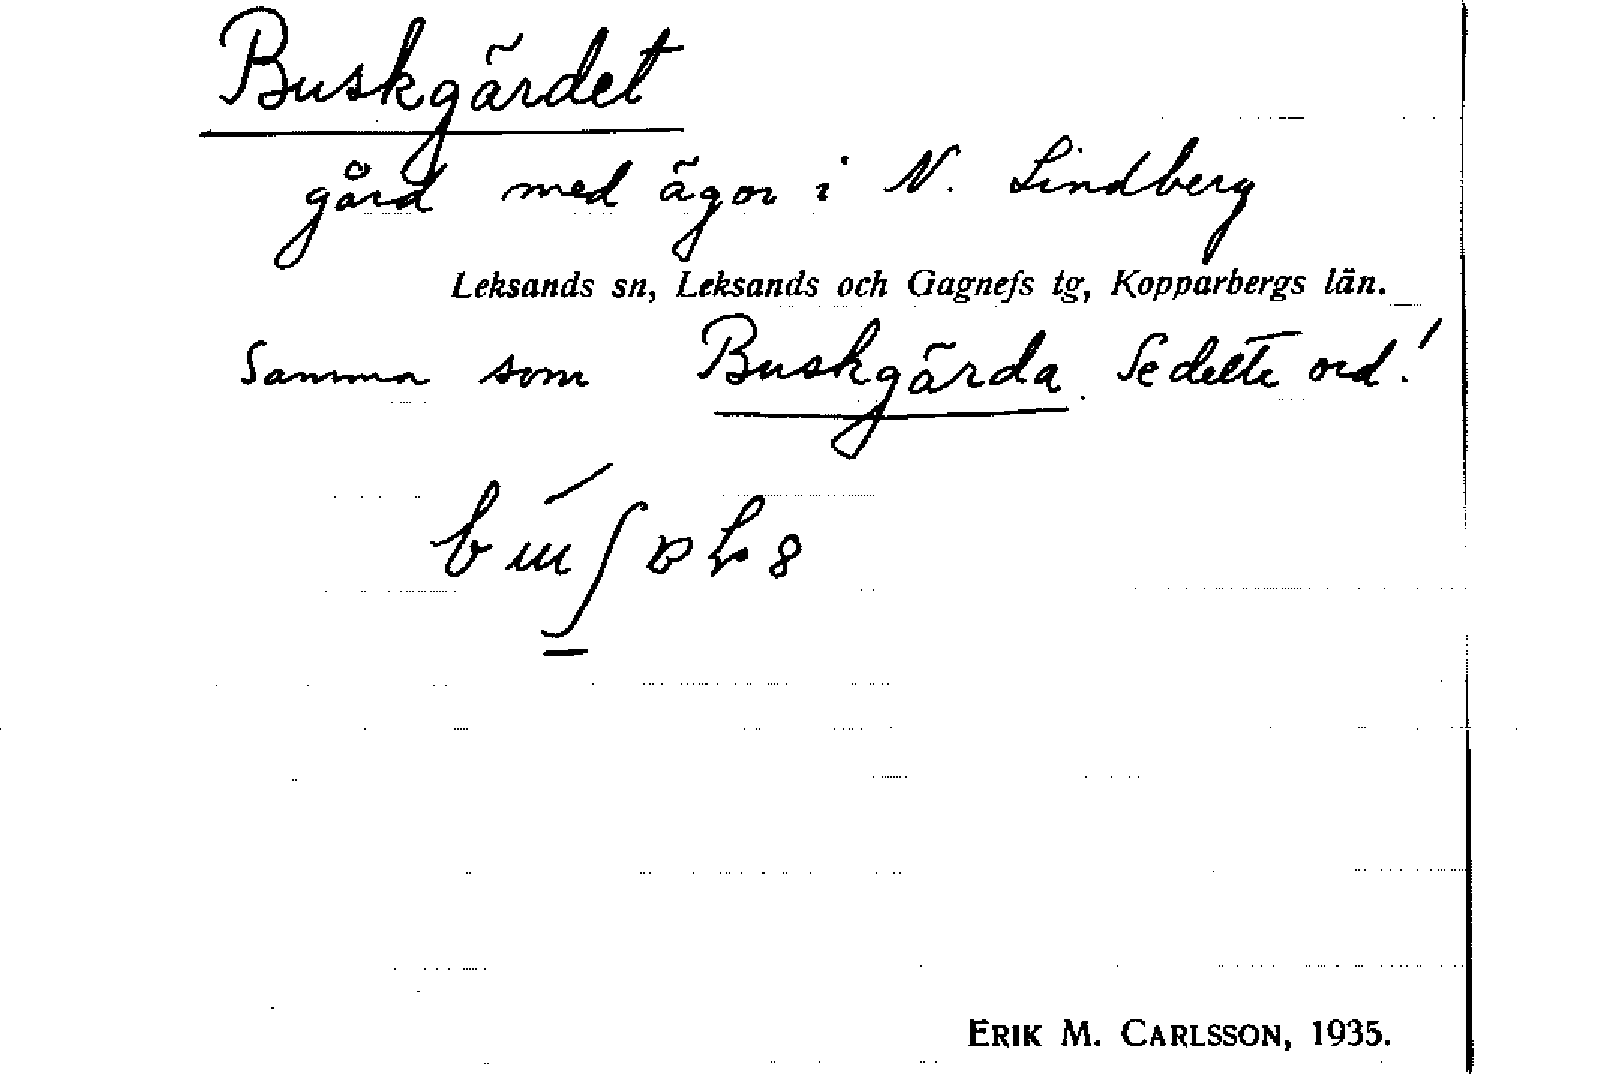 Buskgärdet
gård med ägor i N. Lindberg
Leksands sn, Leksands och Gagnefs tg, Kopparbergs län.
Samma som Buskgärda. Se detta ord!
ERIK M. CARLSSON, 1935.